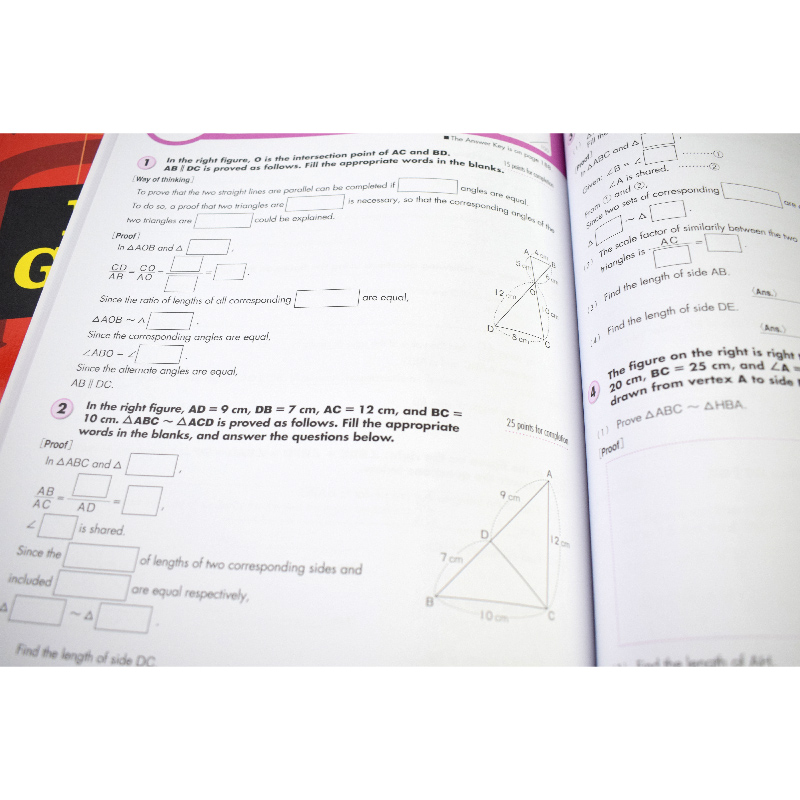 ■ The Answer Key is on page 188.
1 In the right figure, O is the intersection point of AC and BD.
AB ∥ DC is proved as follows. Fill the appropriate words in the blanks.
15 points for completion
[Way of thinking]
To prove that the two straight lines are parallel can be completed if angles are equal.
To do so, a proof that two triangles are is necessary, so that the corresponding angles of the
two triangles are could be explained.
[Proof]
In △AOB and △ ,
CD/AB = CO/AO = = .
Since the ratio of lengths of all corresponding are equal,
△AOB ~ △ .
Since the corresponding angles are equal,
∠ABO = ∠ .
Since the alternate angles are equal,
AB ∥ DC.
A 4 cm B
5 cm
6 cm
O
12 cm
D 8 cm C
2 In the right figure, AD = 9 cm, DB = 7 cm, AC = 12 cm, and BC =
10 cm. △ABC ~ △ACD is proved as follows. Fill the appropriate
words in the blanks, and answer the questions below.
25 points for completion
[Proof]
In △ABC and △ ,
AB/AC = /AD = ,
∠ is shared.
Since the of lengths of two corresponding sides and
included are equal respectively,
△ ~ △ .
Find the length of side DC.
A
9 cm
D
12 cm
7 cm
B
10 cm
C
Fill the
[Proof]
In ABC and △ ,
Given: ∠B = ∠ ①
∠A is shared. ②
From ① and ②,
Since two sets of corresponding are
△ ~ △ .
(2) The scale factor of similarity between the two
triangles is AC/ = .
(3) Find the length of side AB.
(Ans.)
(4) Find the length of side DE.
(Ans.)
4 The figure on the right is right
20 cm, BC = 25 cm, and ∠A =
drawn from vertex A to side
(1) Prove △ABC ~ △HBA.
[Proof]
Find the length of
G